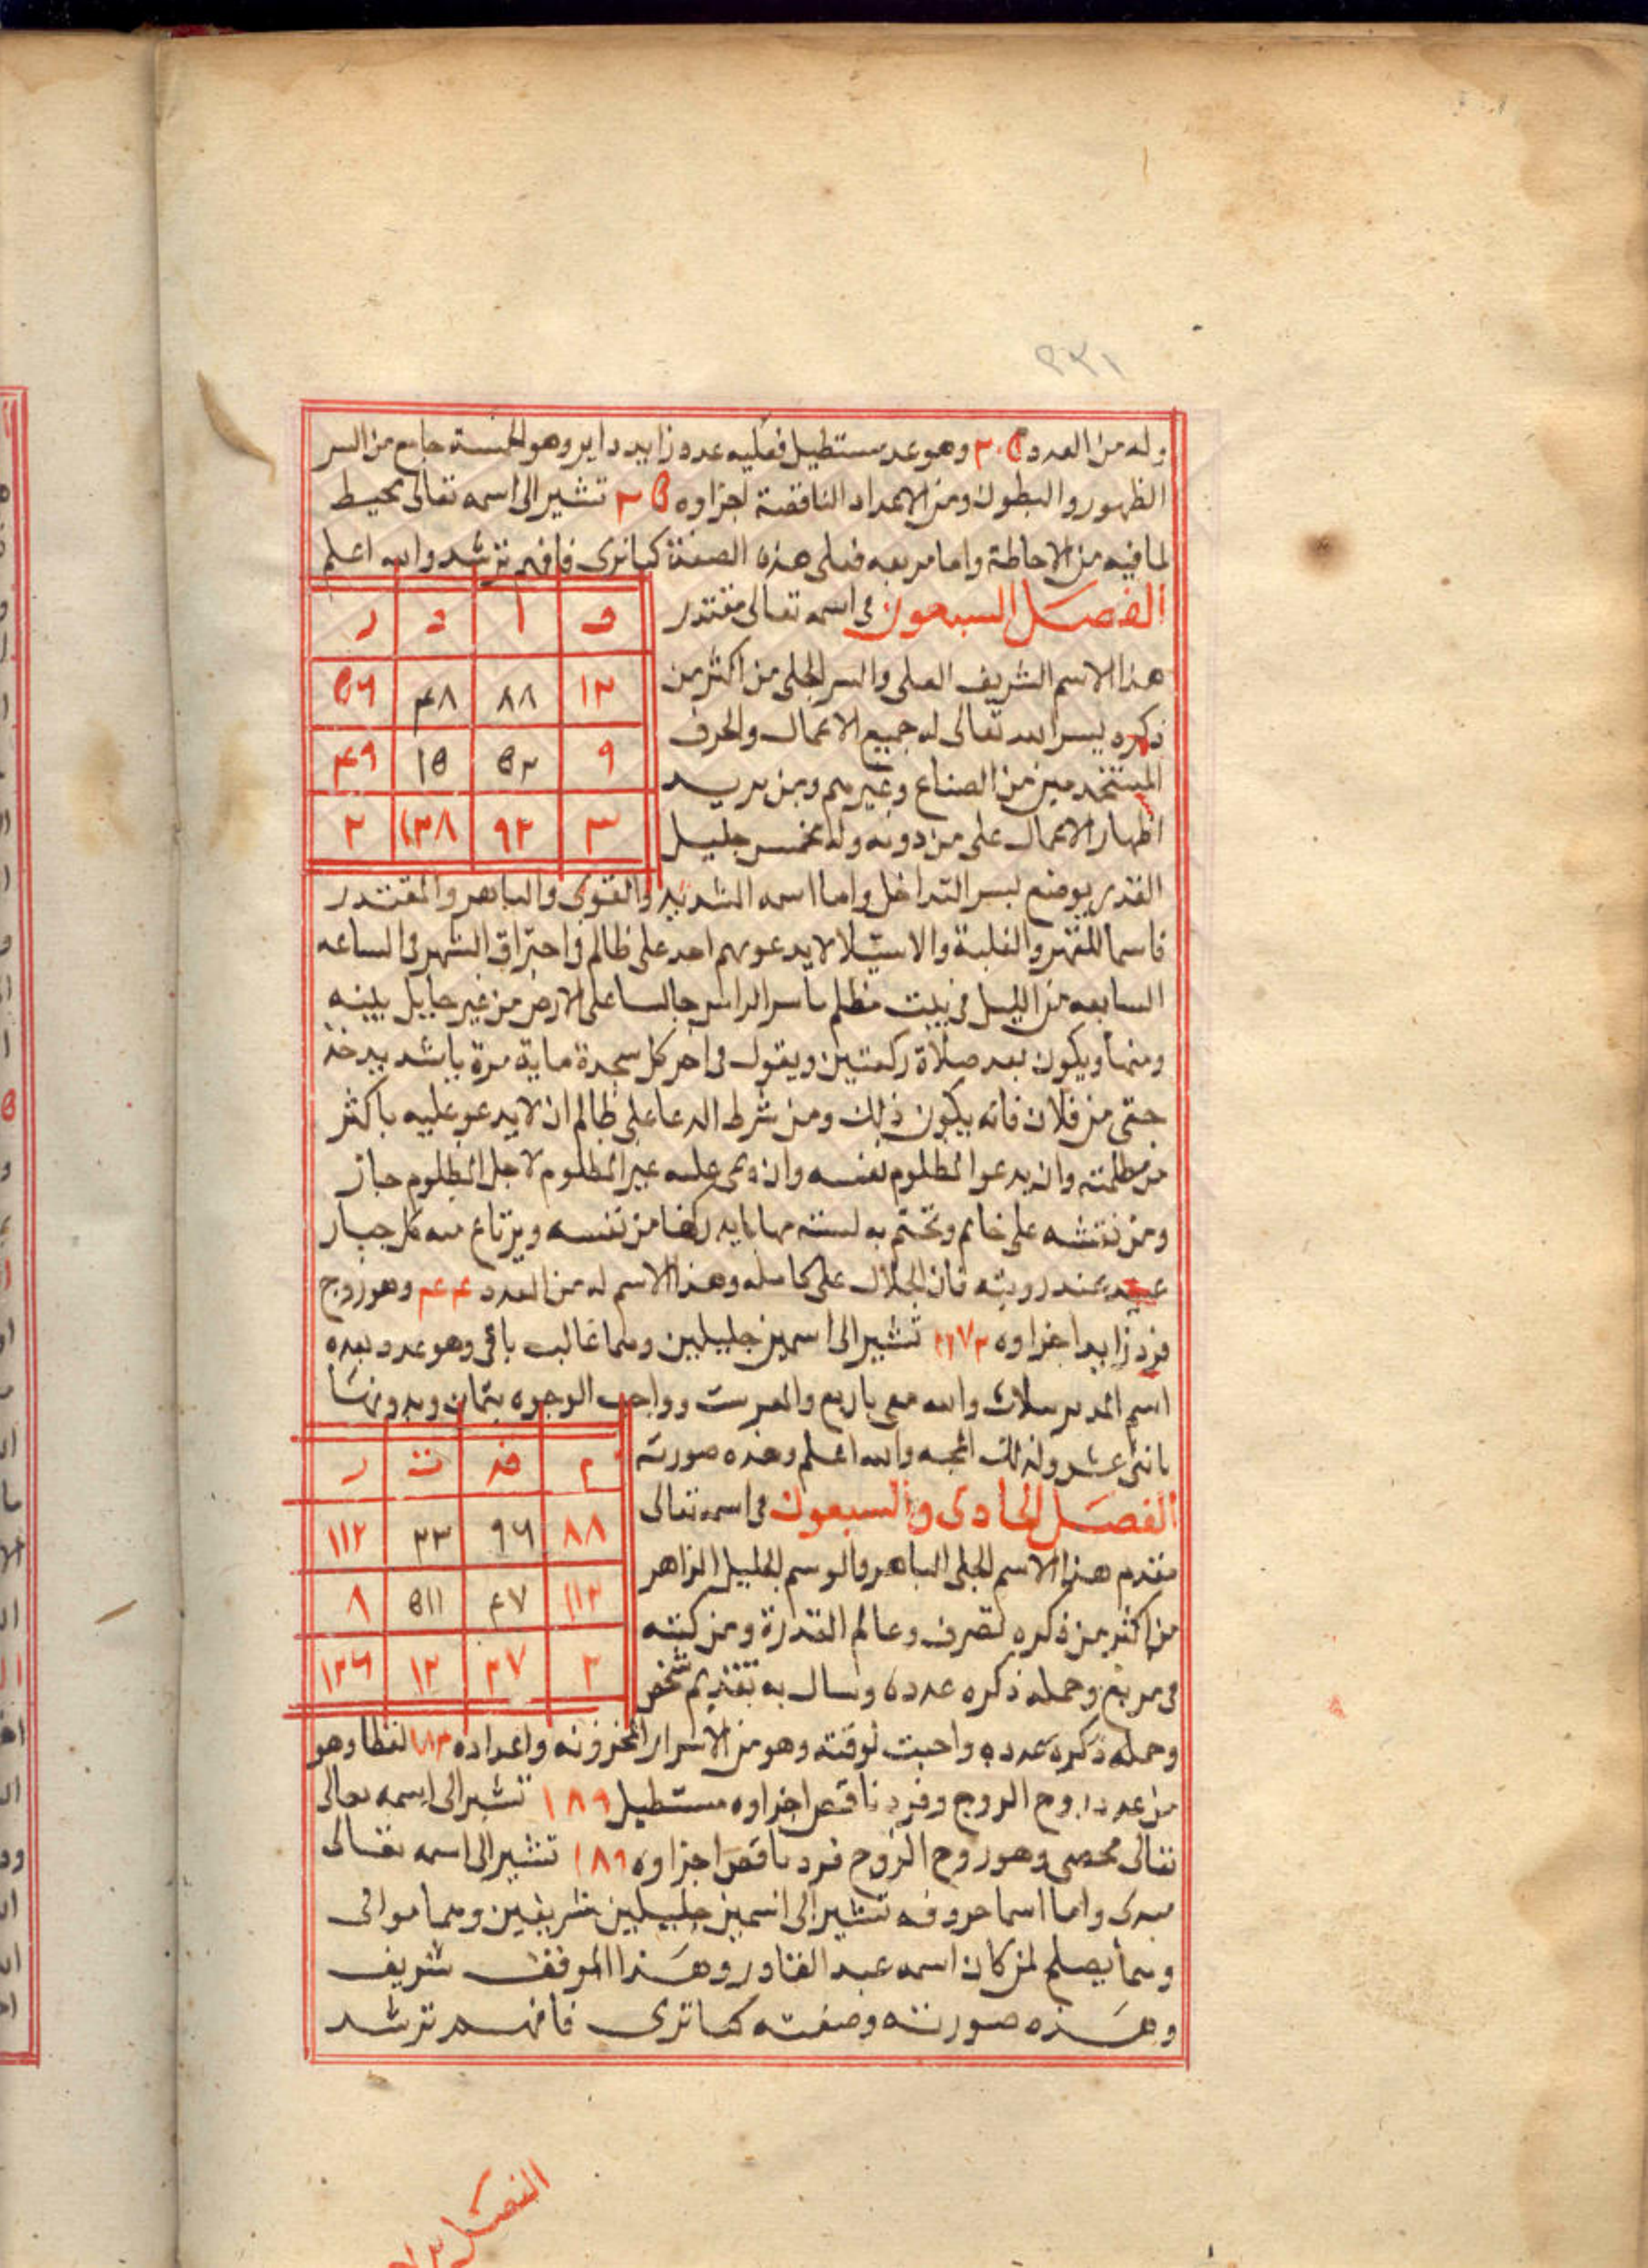 ٢٣١
وله من العدد ٣٠٥ وهو عدد مستطيل فعليه عدد زايد داير وهو الخمسة جامع من السر
الظهور والبطون ومن الاعداد الناقصة اجزاوه ٦٥ تشير الى اسمه تعالى محيط
لما فيه من الاحاطة واما مربعه فعلى هذه الصفة كما ترى فافهم ترشد والله اعلم
الفصل السبعون في اسمه تعالى مقتدر
ق ا د ر
هذا الاسم الشريف العلى والسر الجلى من اكثر من
١٣ ٨٨ ٤٨ ٥٦
ذكره يسر الله تعالى له جميع الاعمال والحرف
المستخدمين من الصناع وغيرهم ومن يريد
٩ ٥٢ ١٥ ٤٩
اظهار الاعمال على من دونه وله مخمس جليل
٣ ٩٢ ١٣٨ ٢
القدر يوضع لسر التداخل واما اسمه الشديد والقوى والباهر والمقتدر
فاسما للقهر والغلبة والاستيلا لا يدعو بهم احد على ظالم فى احتراق الشهر فى الساعه
السابعه من الليل في بيت مظلم حاسر الراس جالسا على الارض من غير حايل بينه
وبينها ويكون بعد صلاة ركعتين ويقول فى اخر كل سجدة ماية مرة يا شديد خذ
حقى من فلان فانه يكون ذلك ومن شرط الدعا على ظالم ان لا يدعو عليه باكثر
من مظلمته وان يدعو المظلوم بنفسه وان دعى عليه غير المظلوم لاجل المظلوم جاز
ومن نقشه على خاتم وتختم به من نفسه ويرتاع منه كل جبار
عنيد عند رويته فان الجلال على كامله وهذا الاسم له من العدد ٧٤٤ وهو زوج
فرد زايد اجزاوه تشير الى اسمين جليلين وهما غالب باقى وهو عدد بعده
اسم والله معى باربع وواجب الوجود بثمان
باثنى عشر ولذلك والله اعلم وهذه صورته
م قد ت ر
الفصل الحادى والسبعون فى اسمه تعالى
٨٨ ٩٦ ٣٣ ١١٢
مقتدم هذا الاسم الجلى الباهر والوسم الجليل الزاهر
١١٣ ٤٧ ٥١١ ٨
من اكثر من ذكره تصرف وعالم القدرة ومن كتبه
فى مربع وحمله ذكره عدده وسال به تقديم شخص
٢ ٣٧ ١٢ ١٣٦
وحمله ذكره عدده واجبت لوقته وهو من الاسرار المخزونه واعداده ١٨٣ لفظا وهو
من عدد زوج الزوج وفرد ناقص اجزاوه مستطيل ١٨٩ تشير الى اسمه تعالى
تعالى محصى وهو زوج الزوج فرد ناقص اجزاوه ١٨٩ تشير الى اسمه تعالى
مبدى واما اسما حروفه تشير الى اسمين جليلين شريفين وهما
وهما يصلح لمن كان اسمه عبد القادر وهذا الموفق شريف
وهذه صورته وصفته كما ترى فافهم ترشد
الفصل